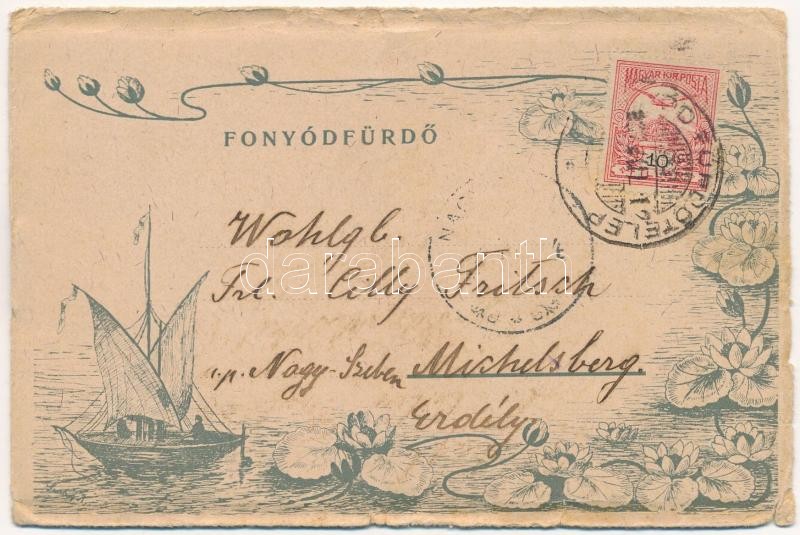 FONYÓDFÜRDŐ
MAGYAR KIR. POSTA
10
FÜRDŐTELEP
12
NAGY
Wohlgb.
Frl. Cilly Fritsch
u.p. Nagy-Szeben Michelsberg.
Erdély
darabanth